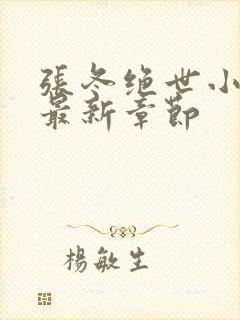 張冬绝世小
最新章節
楊敏生